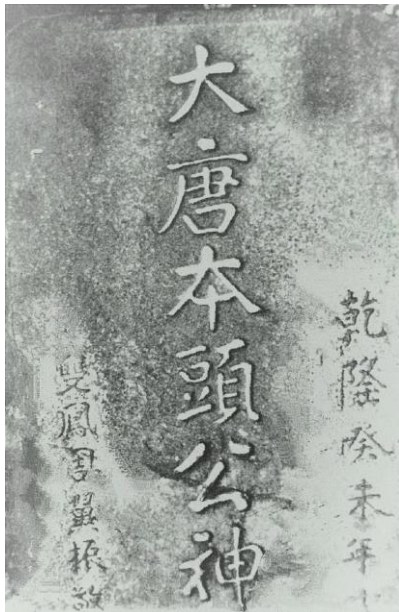 乾隆癸未年
大唐本頭公神
雙鳳周翼振敬